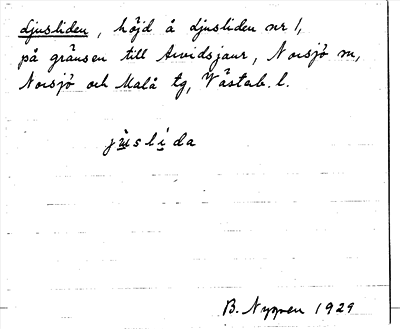 Ljusliden, höjd å Ljusliden nr 1,
på gränsen till Arvidsjaur, Norsjö sn,
Norsjö och Malå tg, Västerb. l.
jùslída
B. Nygren 1929